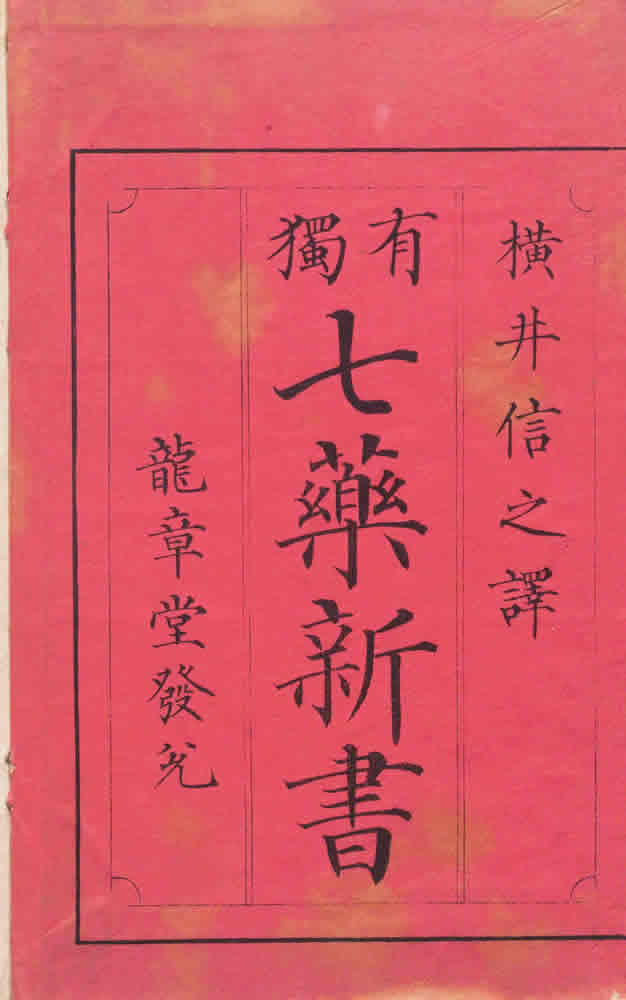 横井信之譯
有獨
七藥新書
龍章堂發兌